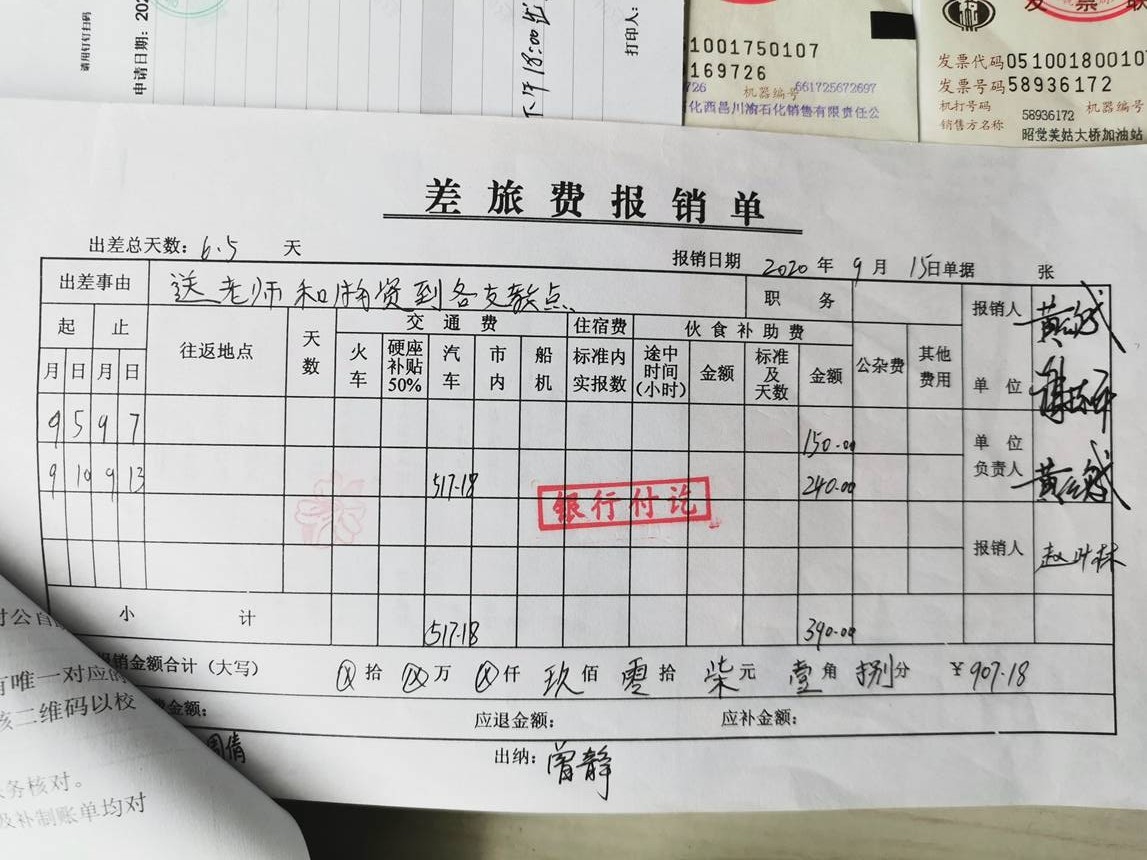 请用钉钉扫码
申请日期: 202
下午18:00
打印人:
1001750107
169726
726 机器编号661725672697
化西昌川渝石化销售有限责任公
发票联
发票代码05100180010
发票号码58936172
机打号码 58936172 机器编号
销售方名称 昭觉美姑大桥加油站
差旅费报销单
出差总天数: 6.5 天
报销日期 2020年9月15日单据 张
出差事由 送老师和捐赠到各支教点 职务 报销人
起 止 往返地点 天数 交通费 住宿费 伙食补助费 公杂费 其他费用
月日月日 火车 硬座补贴50% 汽车 市内 船机 标准内实报数 途中时间(小时) 金额 标准及天数 金额 单位
9 5 9 7 150.00 单位负责人
9 10 9 13 517.18 240.00
银行付讫
报销人
小计 517.18 390.00
报销金额合计(大写) ⊗拾⊗万⊗仟玖佰零拾柒元壹角捌分 ¥907.18
金额: 应退金额: 应补金额:
倩 出纳: 曾静
对公自
有唯一对应的
该二维码以校
务核对。
及补制账单均对